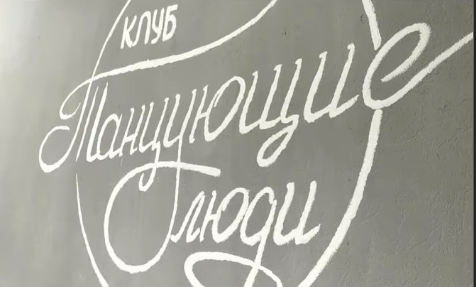 КЛУБ
Танцующие
люди